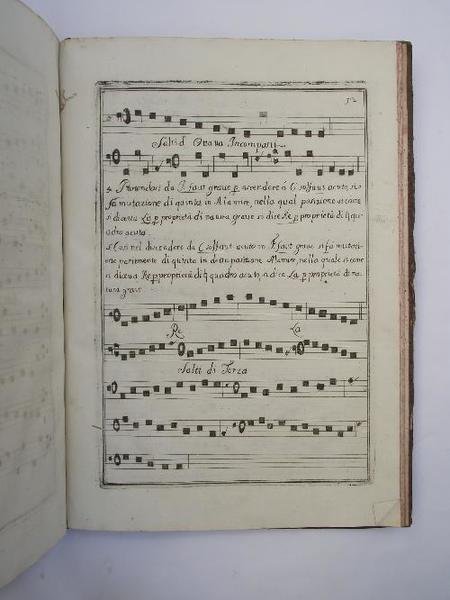 Salti d Ottava Incomposti
Partendosi da F faut grave p ascendere à C solfaut acuto, si
fa mutazione di quinta in A lamire, nella qual posizione si come
si diceva La p proprietà di natura grave si dice Re p proprietà di ♮ qua
dro acuto.
Cosi nel discendere da C solfaut acuto in F faut grave si fà mutazi
one parimente di quinta in detta posizione Alamire, nella quale si come
si diceva Re p proprietà di ♮ quadro acuto, si dice La p proprietà di na
tura grave
Re La
Salti di Terza